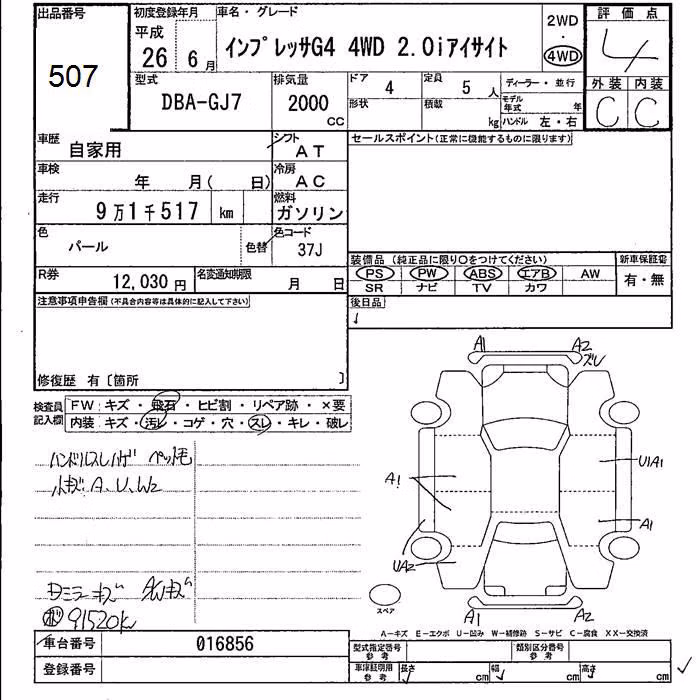 出品番号
507
初度登録年月
平成
26年 6月
車名・グレード
インプレッサG4 4WD 2.0iアイサイト
2WD
・
4WD
評価点
4
型式
DBA-GJ7
排気量
2000
CC
ドア
4
定員
5人
形状
積載
kg
ディーラー・並行
モデル年式
年
ハンドル 左・右
外装 内装
C C
車歴
自家用
シフト
AT
セールスポイント(正常に機能するものに限ります)
車検
年 月( 日)
冷房
AC
走行
9万1千517 km
燃料
ガソリン
色
パール
色替
色コード
37J
R券
12,030円
名変通知期限
月 日
装備品 (純正品に限り○をつけてください)
PS PW ABS エアB AW
SR ナビ TV カワ
新車保証書
有・無
注意事項申告欄(不具合内容等は具体的に記入して下さい)
後日品
修復歴 有〔箇所 〕
検査員記入欄
FW キズ・飛石・ヒビ割・リペア跡・×要
内装 キズ・汚レ・コゲ・穴・スレ・キレ・破レ
ハンドルスレハゲ ペット毛
小キズ A、U、W2
91520k
A1 A2
ズレ
A1
U1A1
A1
UA2
A1 A2
スペア
A-キズ E-エクボ U-凹み W-補修跡 S-サビ C-腐食 XX-交換済
車台番号
016856
登録番号
型式指定番号
参考
類別区分番号
参考
車庫証明用
参考
長さ cm 幅 cm 高さ cm